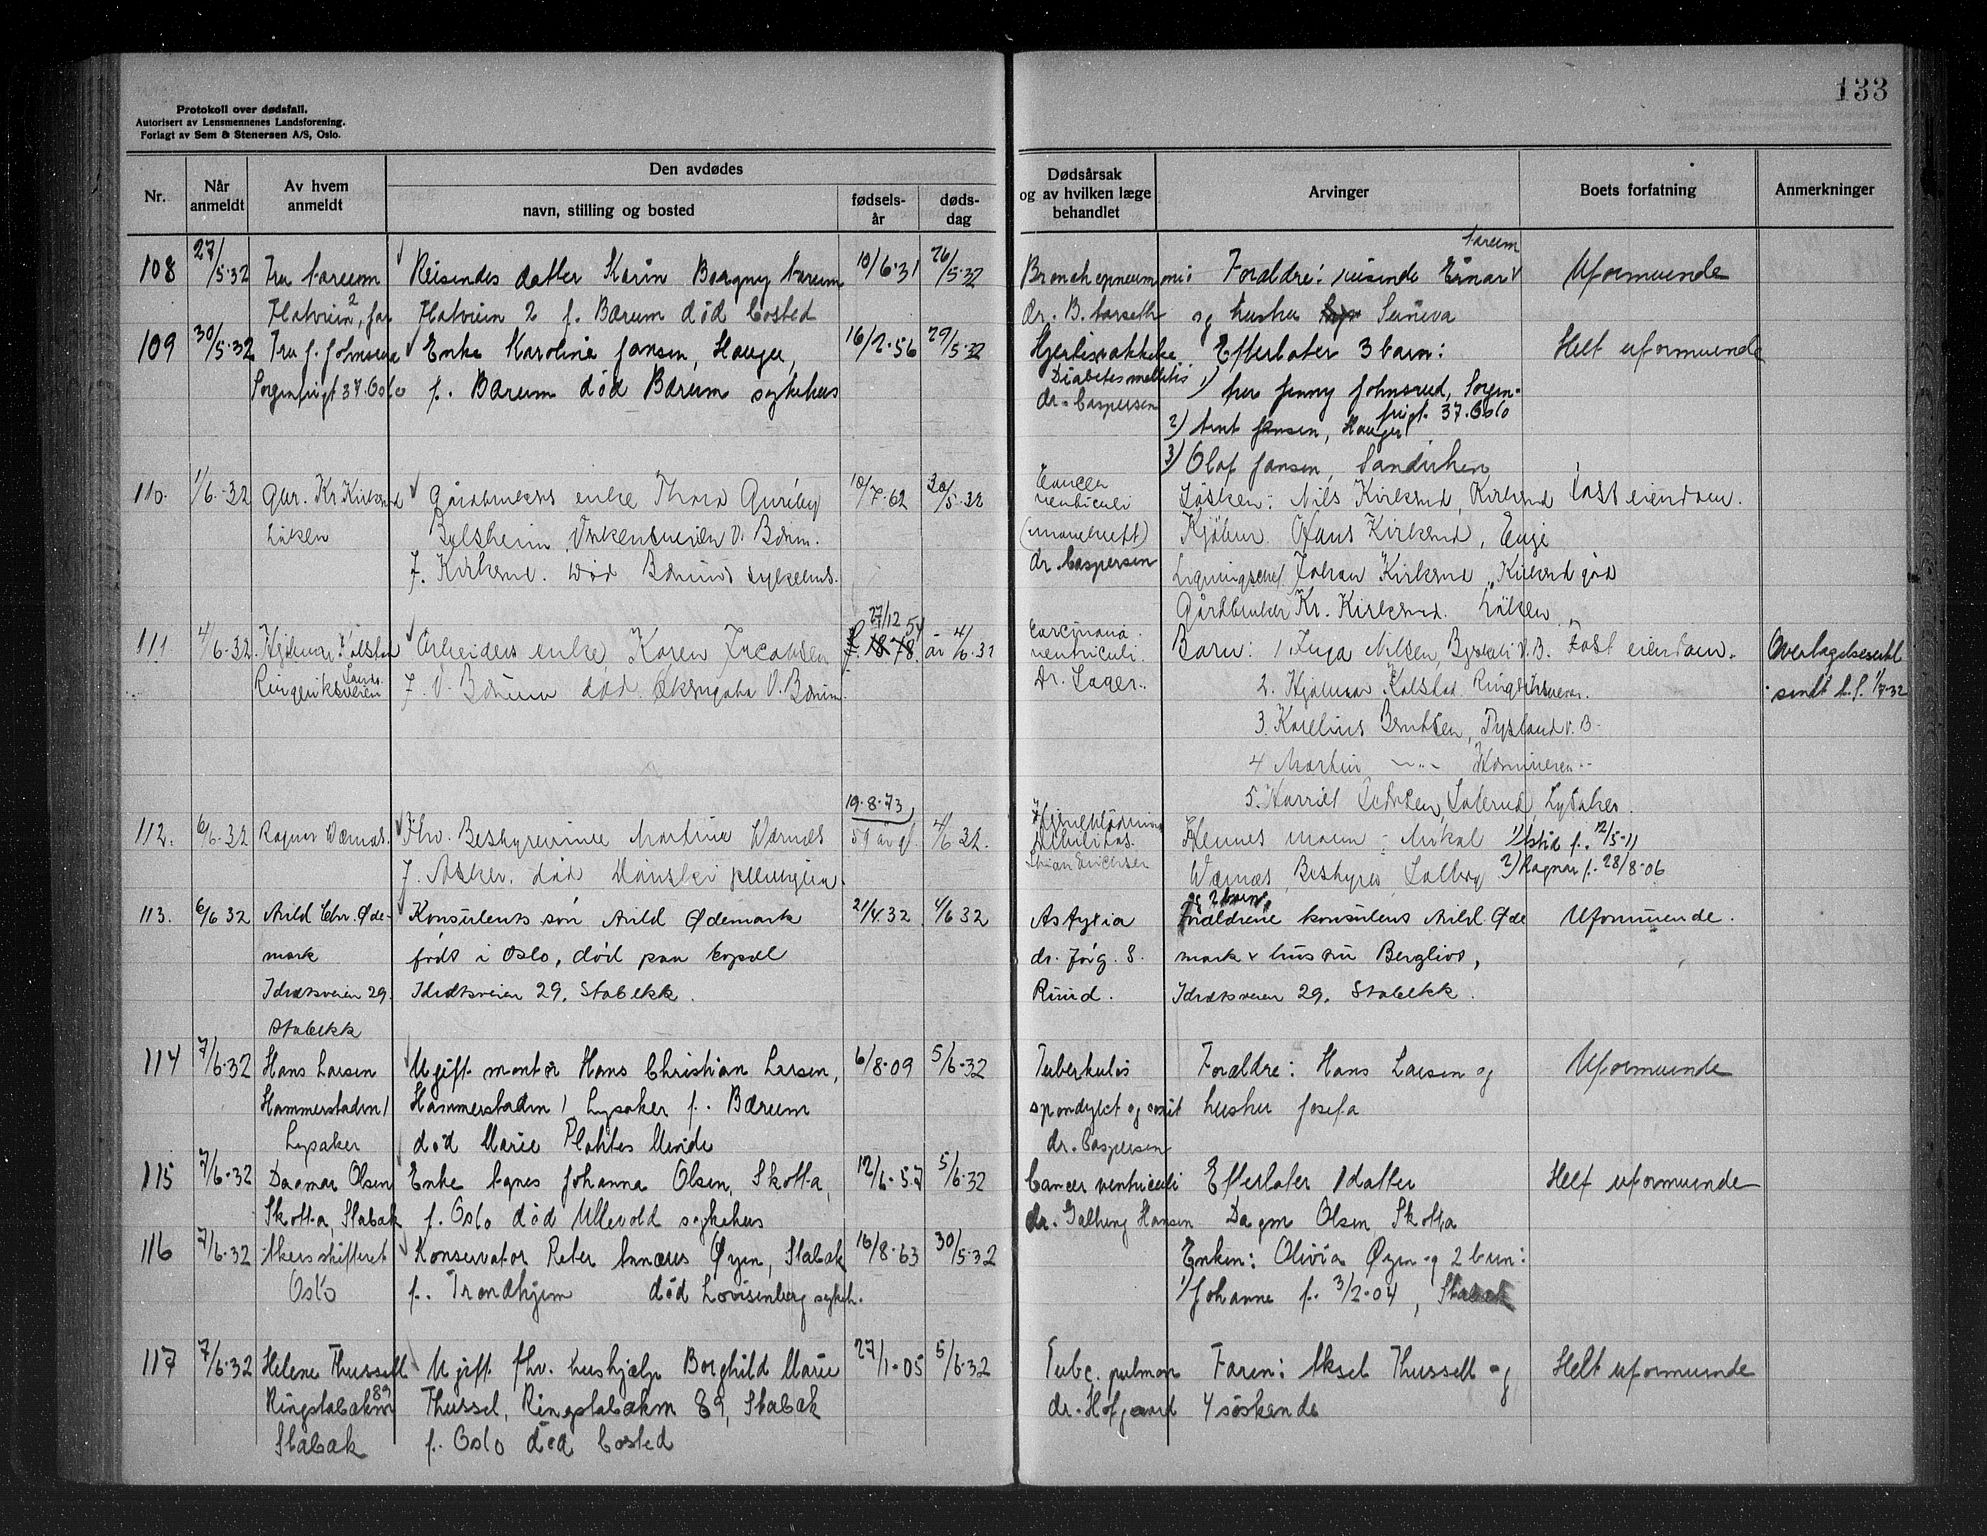 133
Protokoll over dødsfall.
Autorisert av Lensmennenes Landsforening.
Forlagt av Sem & Stenersen A/S, Oslo.
Nr.
Når anmeldt
Av hvem anmeldt
Den avdødes
navn, stilling og bosted
fødsels-år
døds-dag
Dødsårsak og av hvilken læge behandlet
Arvinger
Boets forfatning
Anmerkninger
108 27/5-32 Fru Reisendes datter Karin Borgny 10/6-31 26/5-32 Forældre: reisende Einar + Uformuende
Flatveien 2, Flatveien 2 f. Bærum død bosted dr. B. og hustru Suniva
109 30/5-32 Fru J. Johnsrud Enke Karoline Jansen, Hauger, 16/2-56 29/5-32 Efterlater 3 barn: Helt uformuende
Sorgenfrigt 37 Oslo f. Bærum død Bærum sykehus Diabetes mellitis 1) fru Jenny Johnsrud, Sorgen-
dr. Caspersen frigt. 37. Oslo
2) Arnt Jansen, Hauger
3) Olaf Jansen, Sandviken
110. 1/6-32 Gbr. Kr. Kirkerud Gårdbrukers enke Thora 10/7-62 30/5-32 Cancer Søsken: Nils Kirkerud, Kirkerud Fast eiendom.
Løken V. Bærum. ventriculi Hans Kirkerud, Enge
f. Kirkerud. Død Bærums sykehus. dr. Caspersen Johan Kirkerud
Gårdbruker Kr. Kirkerud. Løken
27/12 54
111 4/6-32 Hjalmar Kolstad Arbeiders enke Karen Jacobsen f. 1878. år 4/6-32 Carcinoma Barn: 1 Inga Nilsen, V. B. Fast eiendom.
Ringeriksveien f. V. Bærum død V. Bærum ventriculi. 2. Hjalmar Kolstad Ringeriksveien. sendt 1/7-32
Dr. Lager. 3. Karelius Berntsen,
4 Martin
5. Harriet Lysaker.
19-8-73
112. 6/6-32 Ragnar Wærnæs. Fhv. Bestyrerinne Martine Wærnæs 59 år gl. 4/6 32. Hjerneblødning Hennes mann: Mikal 1) Astrid f. 12/5-11
f. Asker. død Wærnæs, Bestyrer, 2) Ragnar f. 28/8-06
og 2 barn.
113. 6/6 32 Arild Chr. Øde- Konsulents søn Arild Ødemark 21/4.32 4/6 32 Asfyxia Forældrene konsulent Arild Øde Uformuende.
mark født i Oslo, død paa dr. Jørg. S. mark + hustru Bergliot,
Idrætsveien 29. Idrætsveien 29. Stabekk. Ruud. Idrætsveien 29. Stabekk.
Stabekk
114 7/6-32 Hans Larsen Ugift montør Hans Christian Larsen, 6/8-09 5/6-32 Tuberkuløs Forældre: Hans Larsen og Uformuende
Hammerstadm 1 Hammerstadm 1 Lysaker f. Bærum hustru Josefa
Lysaker død Marie Plahtes Minde dr. Caspersen
115 7/6-32 Dagmar Olsen Enke Agnes Johanna Olsen, Skotta, 12/6-57 5/6-32 Cancer ventriculi Efterlater 1 datter Helt uformuende
Skotta, Stabæk f. Oslo død Ullevold sykehus dr. Hansen Dagm Olsen Skotta
116 7/6-32 Akers skifteret Konservator Peter Annæus Øyen, Stabæk 16/8-63 30/5-32 Enken: Olivia Øyen og 2 barn:
Oslo f. Trondhjem død Lovisenberg sykeh. 1) Johanne f. 3/2-04, Stabæk
117 7/6-32 Helene Thussell Ugift fhv. hushjælp Borghild Marie 27/1-05 5/6-32 Tubc. pulmon Faren: Aksel Thussell og Helt uformuende
Ringstabækm 89 Thussel, Ringstabækm 89, Stabæk dr. Hofgaard 4 søskende
Stabæk f. Oslo død bosted